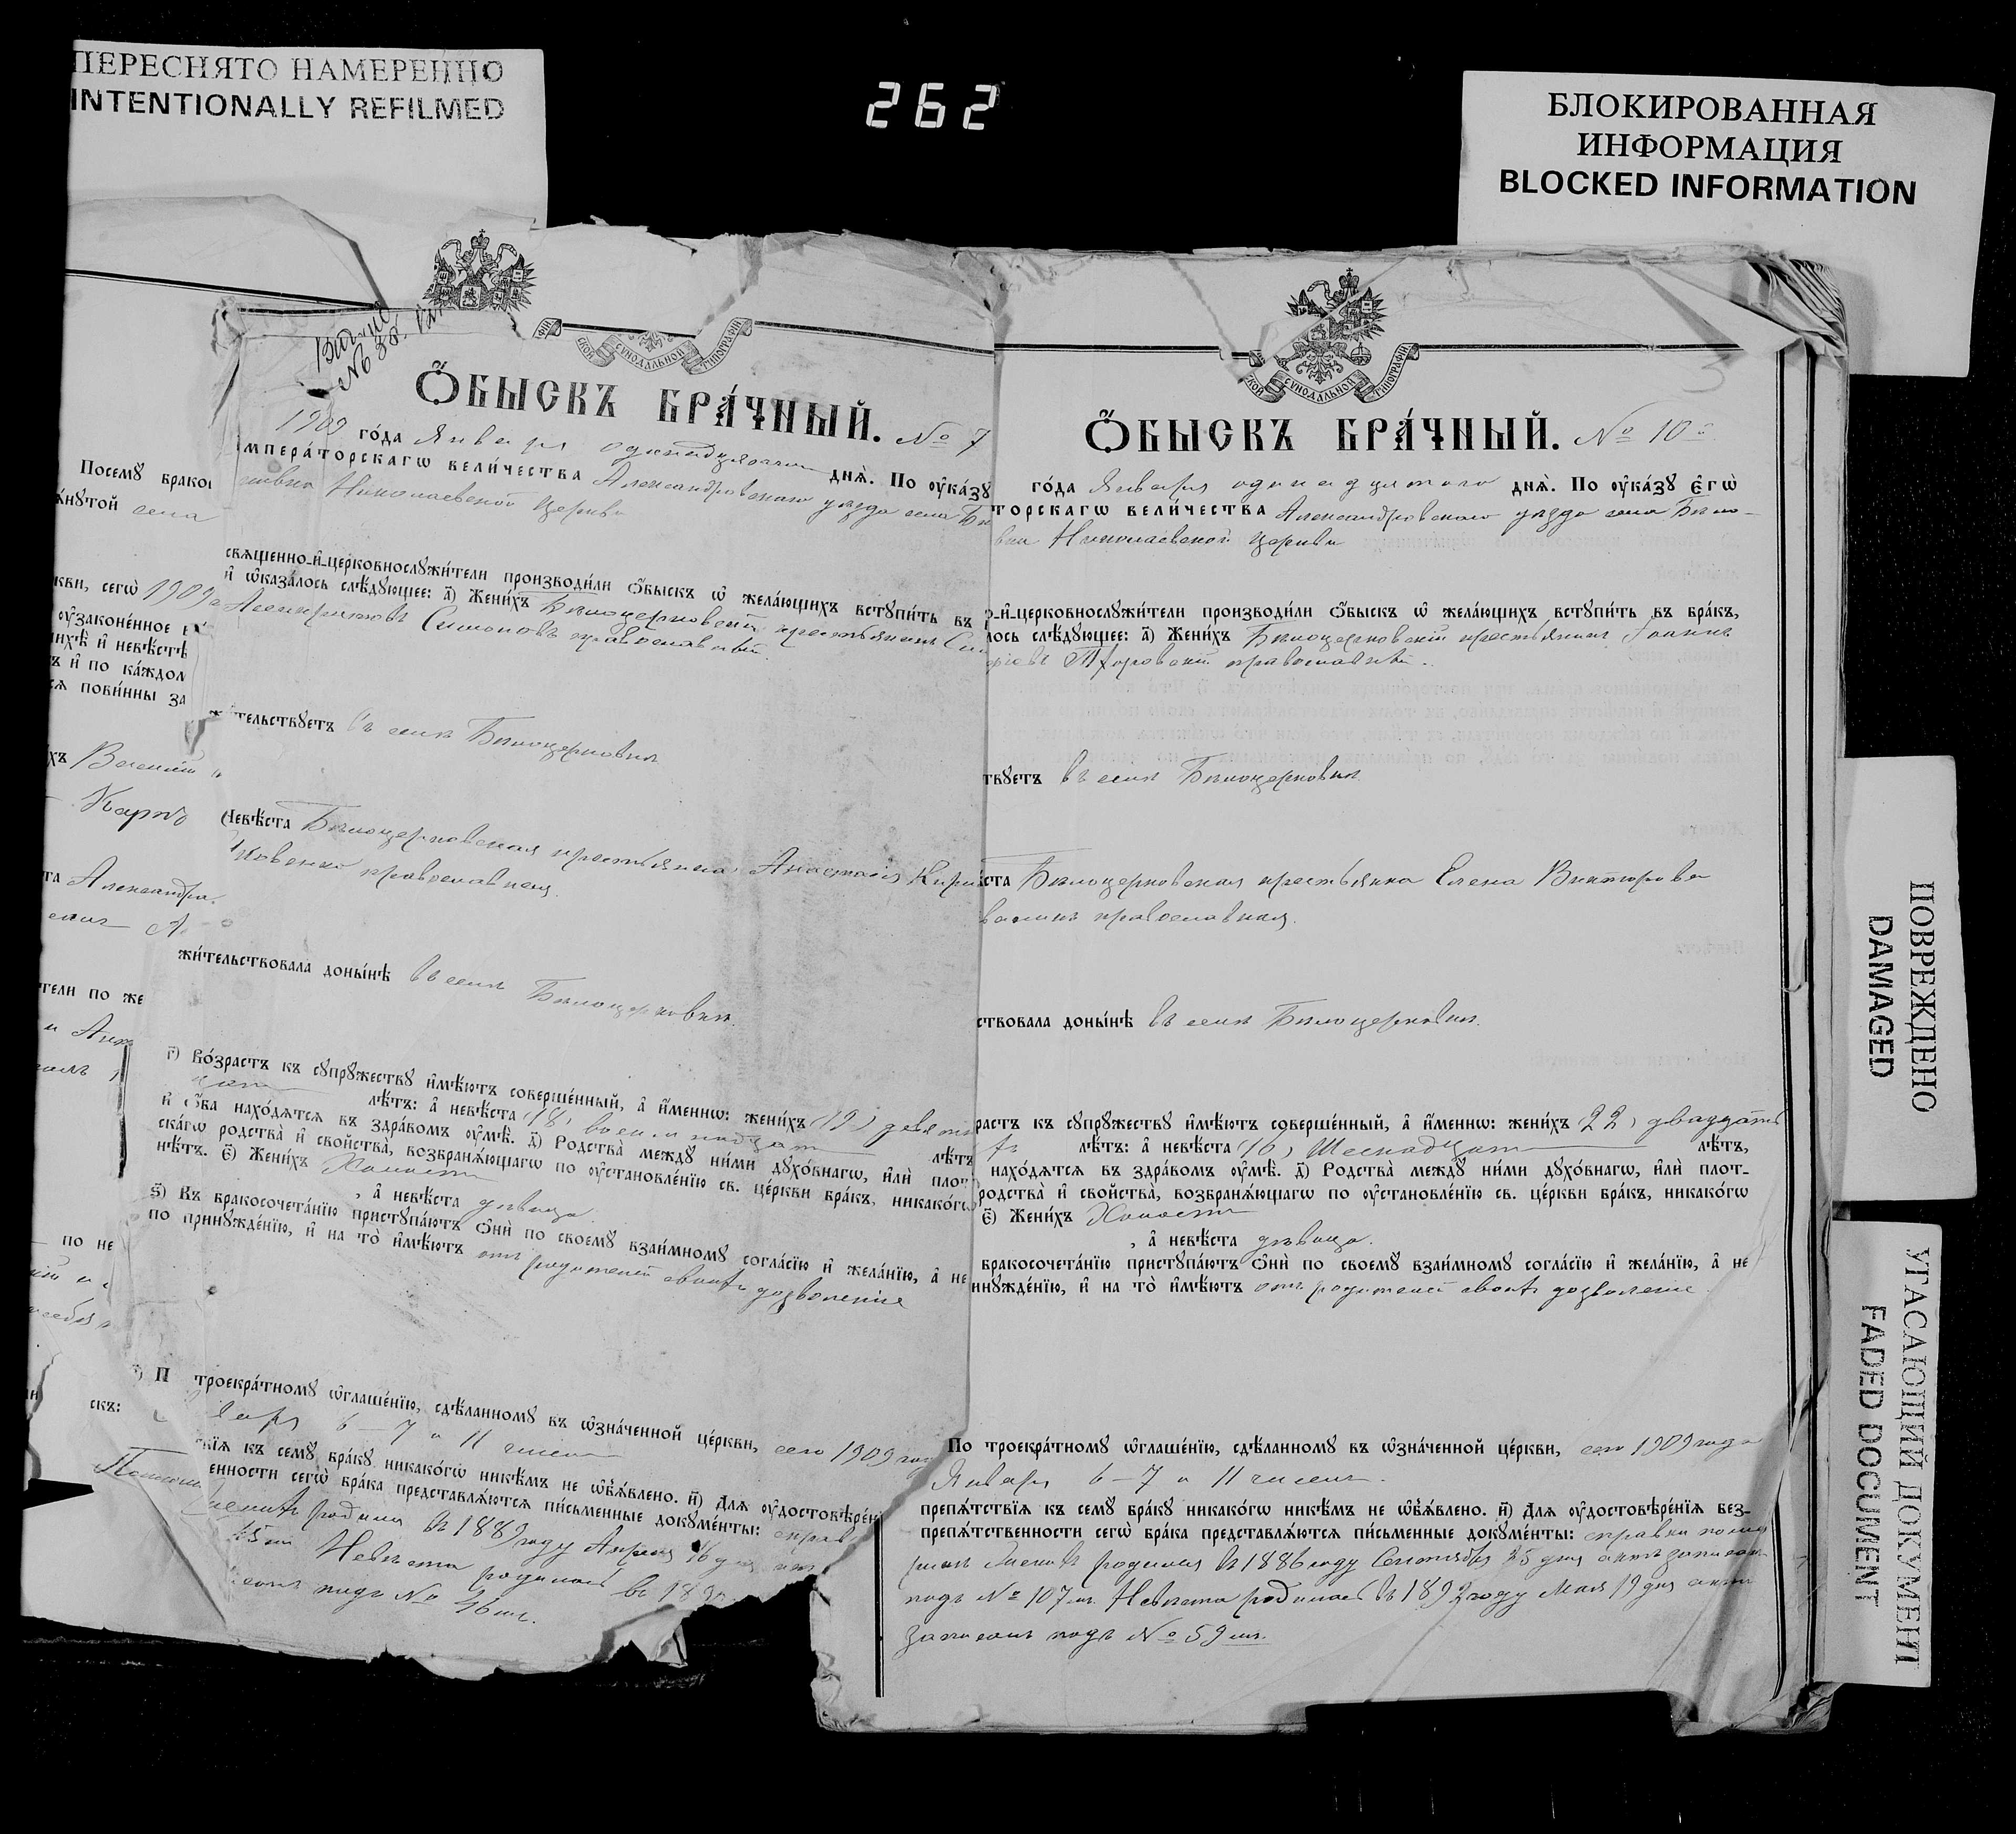 ПЕРЕСНЯТО НАМЕРЕННО
INTENTIONALLY REFILMED
262
БЛОКИРОВАННАЯ
ИНФОРМАЦИЯ
BLOCKED INFORMATION
Посему бракос
мѧнутой села
кви, сегѡ 1909
ѹзаконе́нное
нихѣ и҆ невѣстѣ
ъ и҆ по ка́ждом
сѧ пови́нны за
хъ
та Александра
тели по же
по не
скъ:
СКОЙ СѴНОДАЛЬНОЙ ТИПОГРАФІИ
Ѻ҆БЫСКЪ БРА́ЧНЫЙ. № 7
1909 го́да Января одинадцатаго днѧ̀. По ѹ҆ка́зу
мпера́торскагѡ вели́чества Александровскаго уѣзда села Бѣ
Николаевской церкви
свѧщенно-и҆-церковнослѹжи́тели производи́ли ѻ҆́быскъ ѡ҆ жела́ющихъ встѹпи́ть въ
и҆ ѡ҆каза́лось слѣ́дѹющее: а҃) Жени́хъ Бѣлоцерковскій крестьянинъ
Симоновъ православный.
жи́тельствѹетъ въ селѣ Бѣлоцерковкѣ
Невѣ́ста Бѣлоцерковская крестьянка Анастасія
православная.
жи́тельствовала доны́нѣ въ селѣ Бѣлоцерковкѣ.
г҃) Во́зрастъ къ сѹпрѹ́жествѹ и҆мѣ́ютъ соверше́нный, а҆ и҆́меннѡ: жени́хъ (19) девят
лѣ́тъ: а҆ невѣ́ста (18) восемнадцат лѣ́тъ
и҆ ѻ҆́ба нахо́дѧтся въ здра́вомъ ѹ҆мѣ̀. д҃) Родства̀ междѹ̀ ни́ми дѹхо́внагѡ, и҆лѝ плот
скагѡ родства̀ и҆ сво́йства̀, возбранѧ́ющагѡ по ѹ҆становле́нїю св. це́ркви бра́къ, никако́гѡ
нѣ́тъ. є҃) Жени́хъ Холостъ
, а҆ невѣ́ста дѣвица.
ѕ҃) Къ бракосочета́нїю пристѹпа́ютъ ѻ҆нѝ по своемѹ̀ взаи́мномѹ согла́сїю и҆ жела́нїю, а҆ не
по принѹжде́нїю, и҆ на то̀ и҆мѣ́ютъ отъ родителей своихъ дозволеніе
троекра́тномѹ ѡ҆глаше́нїю, сдѣ́ланномѹ въ ѡ҆зна́ченной це́ркви, сего 1909 год
6 – 7 и 11 чиселъ
къ семѹ̀ бра́кѹ никако́гѡ никѣ́мъ не ѡ҆б̾ѧ́влено. и҃) Длѧ ѹ҆достовѣре́н
енности сегѡ̀ бра́ка представлѧ́ются пи́сьменные докѹме́нты: справ
родился въ 1889 году Апрѣля 16 дня
Невѣста родилась въ 189
подъ № 46 мъ.
СКОЙ СѴНОДАЛЬНОЙ ТИПОГРАФІИ
Ѻ҆БЫСКЪ БРА́ЧНЫЙ. № 10
го́да Января одинадцатаго днѧ̀. По ѹ҆ка́зѹ є҆гѡ̀
торскагѡ вели́чества Александровскаго уѣзда села Бѣло-
вки Николаевской церкви
о-и҆-церковнослѹжи́тели производи́ли ѻ҆́быскъ ѡ҆ жела́ющихъ встѹпи́ть въ бра́къ,
лось слѣ́дѹющее: а҃) Жени́хъ Бѣлоцерковскій крестьянинъ Іоаннъ
православный.
твѹетъ въ селѣ Бѣлоцерковкѣ
ста Бѣлоцерковская крестьянка Елена Викторова
православная.
ствовала доны́нѣ въ селѣ Бѣлоцерковкѣ.
растъ къ сѹпрѹ́жествѹ и҆мѣ́ютъ соверше́нный, а҆ и҆́меннѡ: жени́хъ 22) двадцать
лѣ́тъ: а҆ невѣ́ста (16) Шеснадцат лѣ́тъ,
нахо́дѧтся въ здра́вомъ ѹ҆мѣ̀. д҃) Родства̀ междѹ̀ ни́ми дѹхо́внагѡ, и҆лѝ плот-
родства̀ и҆ сво́йства̀, возбранѧ́ющагѡ по ѹ҆становле́нїю св. це́ркви бра́къ, никако́гѡ
є҃) Жени́хъ Холостъ
, а҆ невѣ́ста дѣвица.
бракосочета́нїю пристѹпа́ютъ ѻ҆нѝ по своемѹ̀ взаи́мномѹ согла́сїю и҆ жела́нїю, а҆ не
инѹжде́нїю, и҆ на то̀ и҆мѣ́ютъ отъ родителей своихъ дозволеніе.
По троекра́тномѹ ѡ҆глаше́нїю, сдѣ́ланномѹ въ ѡ҆зна́ченной це́ркви, сего 1909 года
Января 6 – 7 и 11 чиселъ.
препѧ́тствїѧ къ семѹ̀ бра́кѹ никако́гѡ никѣ́мъ не ѡ҆б̾ѧ́влено. и҃) Длѧ ѹ҆достовѣре́нїѧ без-
препѧ́тственности сегѡ̀ бра́ка представлѧ́ются пи́сьменные докѹме́нты: справки
Женихъ родился въ 1886 году Сентября 25 дня актъ записанъ
подъ № 107 мъ. Невѣста родилась въ 1892 году Мая 19 дня актъ
записанъ подъ № 59 мъ.
ПОВРЕЖДЕНО
DAMAGED
УГАСАЮЩИЙ ДОКУМЕНТ
FADED DOCUMENT